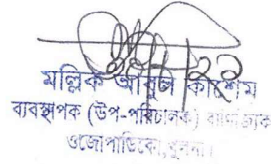 মল্লিক আবুল কাশেম
ব্যবস্থাপক (উপ-পরিচালক) বাণিজ্যিক
ওজোপাডিকো, খুলনা।